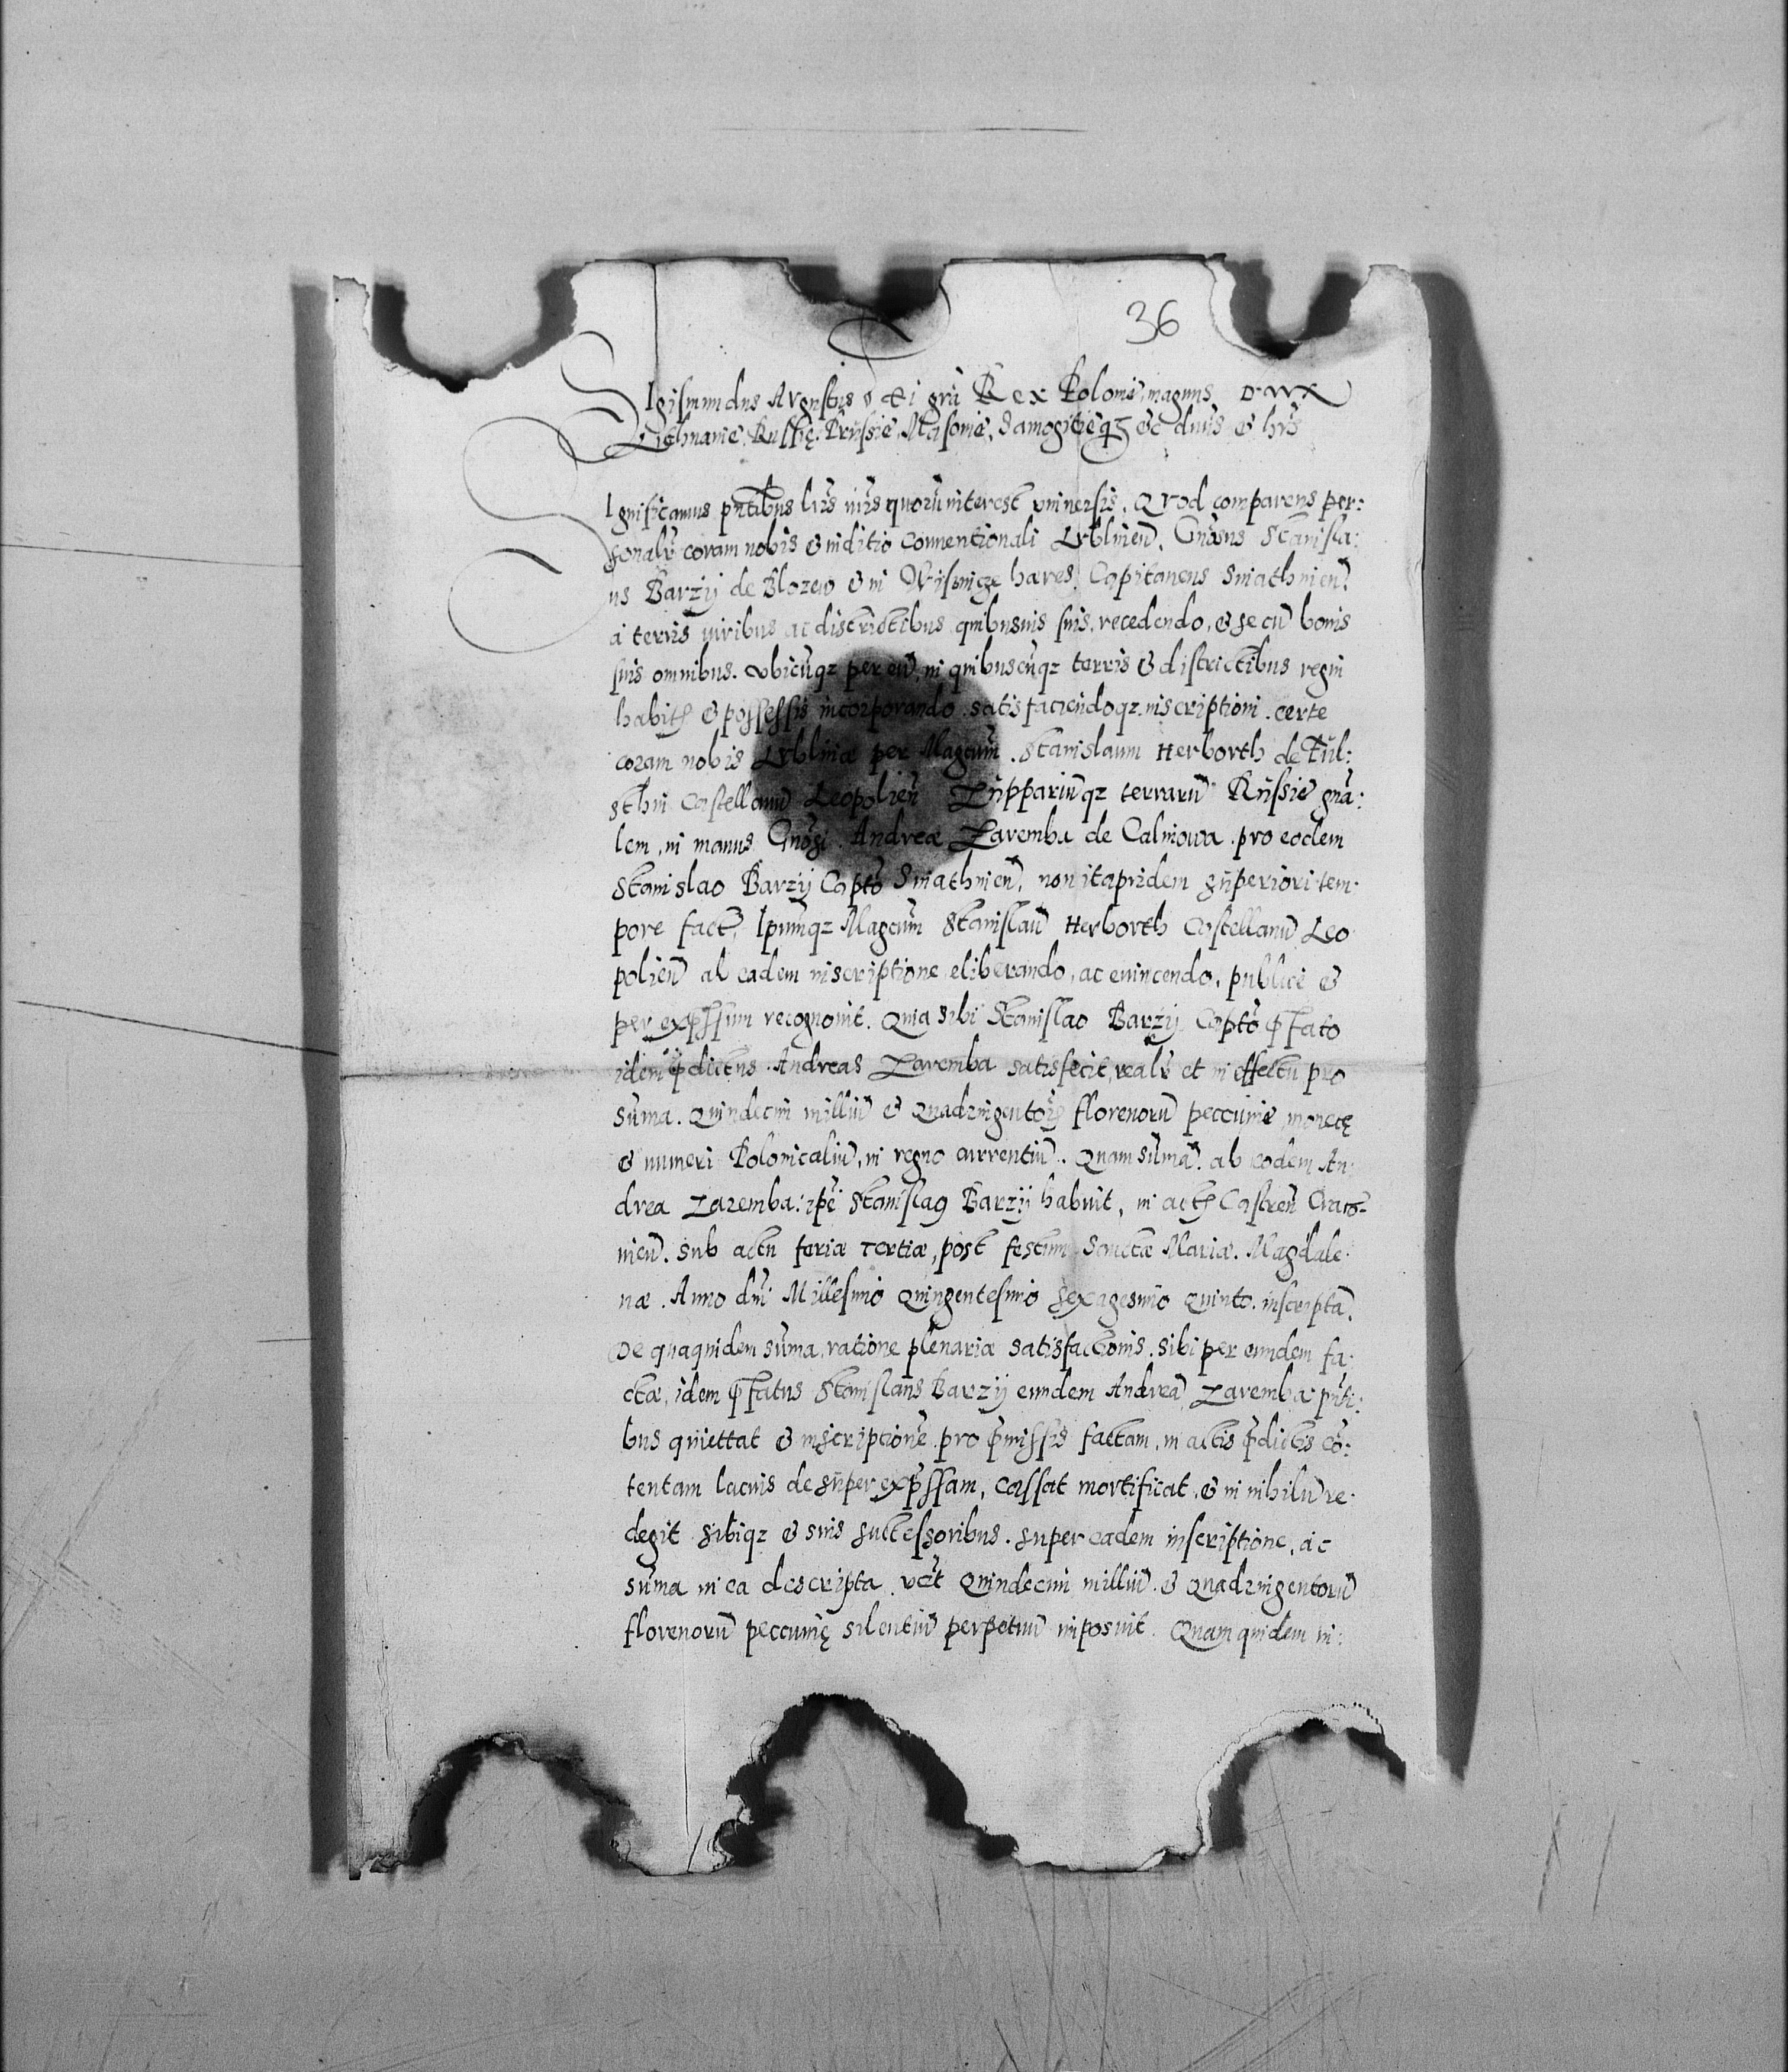 36
Sigismundus Augustus dei gra Rex Poloniē, magnus Dux
Lithuaniē, Russię, Prussiē, Masoniē, Samogitiēqz ec dnus & hrs
Significamus pntibus lris nris quorū interest vniuersis. Quod comparens per:
sonalr̄ coram nobis & iuditio conuentionali Lublinen̄. Gnosus Stanisla:
us Barzÿ de Blozew & in Wisnicze haeres, Capitaneus Sniathnien̄.
a terris iuribus ac districtibus quibusuis suis recedendo, & se cū bonis
suis omnibus. vbicūqz per eū, in quibuscūqz terris & districtibus regni
habitis & possessis incorporando. satisfaciendoqz inscriptioni. certe
coram nobis Lublinæ per Magcum. Stanislaum Herborth de Ful:
sthin Castellanū Leopolien̄ Zuppariūqz terrarū Russiē gnā:
lem, in manus Gnosi. Andreæ Zaremba de Calinowa. pro eodem
Stanislao Barzÿ Capto Sniathnien̄. non itapridem superiori tem:
pore factē, Ipumqz Magcum Stanislaū Herborth Castellanū Leo
polien̄ ab eadem inscriptione eliberando, ac euincendo, publice &
per expssum recognouit. Quia sibi Stanislao Barzÿ Capto pfato
idem pdictus Andreas Zaremba satisfecit, realr̄ et in effectu pro
sūma. Quindecim milliū & Quadringentorū florenorū peccuniē, monetę
& numeri Polonicaliū, in regno currentiū. Quam sūmā. ab eodem An:
drea Zaremba: ipē Stanislaus Barzÿ habuit, in actis Castren̄ Craco-
nien̄. sub actu feriæ Tertiæ, post festum Sanctæ Mariæ. Magdale:
næ. Anno dni Millesimo Quingentesimo Sexagesimo quinto. inscriptā.
De quaquidem sūma, ratione plenariæ satisfactionis. sibi per eundem fa:
ctæ, idem pfatus Stanislaus Barzÿ eundem Andreā Zaremba pnti:
bus quiettat & inscriptionē pro pmissis factam, in actis pdictis cō:
tentam lacius desuper expssam, cassat mortificat, & in nihilū re:
degit sibiqz & suis successoribus. super eadem inscriptione, ac
sūma in ea descripta. vct Quindecim milliū. & Quadringentorū
florenorū peccunię silentiū perpetuū imposuit. Quam quidem in: